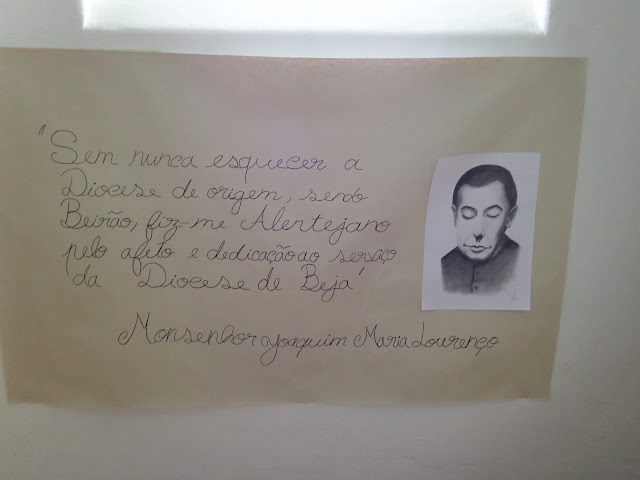 "Sem nunca esquecer a
Diocese de origem, sendo
Beirão, fiz-me Alentejano
pelo afeto e dedicação ao serviço
da Diocese de Beja"
Monsenhor Joaquim Maria Lourenço